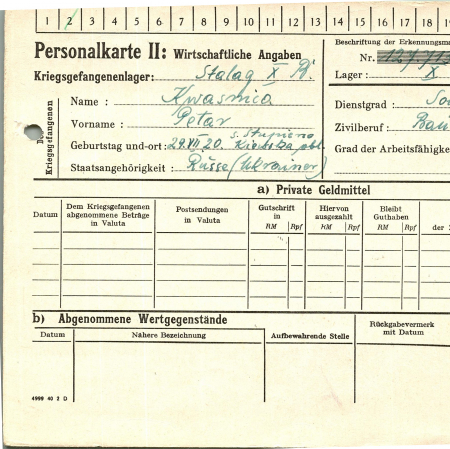 1 2 3 4 5 6 7 8 9 10 11 12 13 14 15 16 17 18 19
Personalkarte II: Wirtschaftliche Angaben
Kriegsgefangenenlager: Stalag X B.
Beschriftung der Erkennungsma
Nr.
Lager: X
Kriegsgefangenen
Name: Kwasnica
Vorname: Petar
Geburtstag und-ort: 29.VII.20. s. Kiewska obl.
Staatsangehörigkeit: Russe (Ukrainer)
Dienstgrad: So
Zivilberuf: Bau
Grad der Arbeitsfähigke
a) Private Geldmittel
Datum
Dem Kriegsgefangenen abgenommene Beträge in Valuta
Postsendungen in Valuta
Gutschrift in
RM Rpf
Hiervon ausgezahlt
RM Rpf
Bleibt Guthaben
RM Rpf
der
b) Abgenommene Wertgegenstände
Datum
Nähere Bezeichnung
Aufbewahrende Stelle
Rückgabevermerk mit Datum
4999 40 2 D